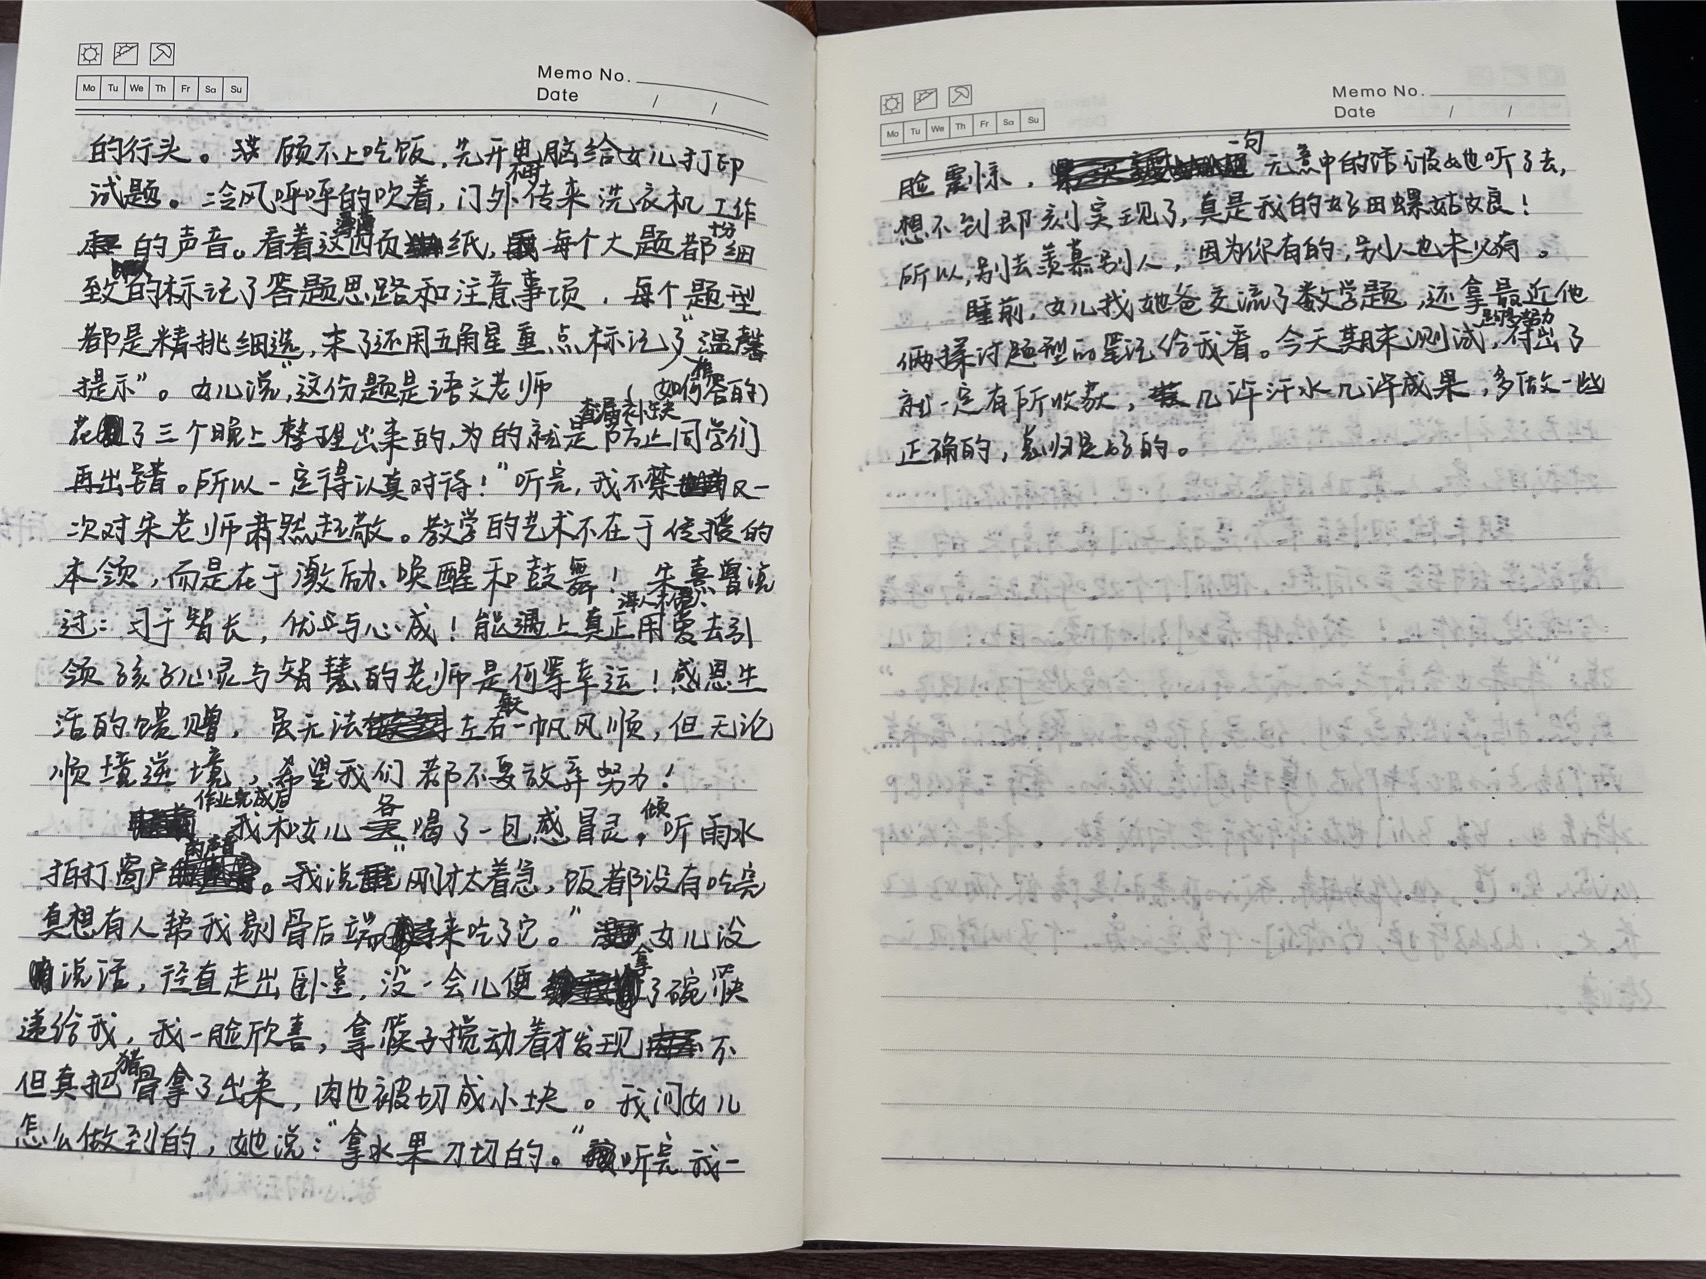 Mo Tu We Th Fr Sa Su
Memo No.
Date / /
的行头。顾不上吃饭,先开电脑给女儿打印
试题。冷风呼呼的吹着,门外不时传来洗衣机工作
的声音。看着这薄薄四页纸,每个大题都十分细
致的标记了答题思路和注意事项,每个题型
都是精挑细选,末了还用五角星重点标记了“温馨
提示”。女儿说“,这份题是语文老师(如何作答的)
花了三个晚上整理出来的,为的就是查漏补缺防止同学们
再出错。所以一定得认真对待!”听完,我不禁又一
次对朱老师肃然起敬。教学的艺术不在于传授的
本领,而是在于激励、唤醒和鼓舞!朱熹曾说
过:习于智长,优与心成!能遇上真正诲人不倦、用爱去引
领孩子心灵与智慧的老师是何等幸运!感恩生
活的馈赠,虽无法左右一帆风顺,但无论
顺境逆境,希望我们都不要放弃努力!
作业完成后,我和女儿各喝了一包感冒灵。倾听雨水
拍打窗户的声音。我说“刚才太着急,饭都没有吃完
真想有人帮我剔骨后端来吃了它。”女儿没
说话,径直走出卧室,没一会儿便拿了碗筷
递给我,我一脸欣喜,拿筷子搅动着才发现不
但真把猪骨拿了出来,肉也被切成小块。我问女儿
怎么做到的,她说:“拿水果刀切的。”听完我一
Mo Tu We Th Fr Sa Su
Memo No.
Date / /
脸震惊,一句无意中的话被她听了去,
想不到即刻实现了,真是我的好田螺姑娘!
所以,别去羡慕别人,因为你有的,别人也未必有。
睡前,女儿找她爸交流了数学题,还拿最近他
俩探讨题型的笔记给我看。今天期末测试,付出了足够多努力
就一定有所收获,几许汗水几许成果,多做一些
正确的,总归是好的。